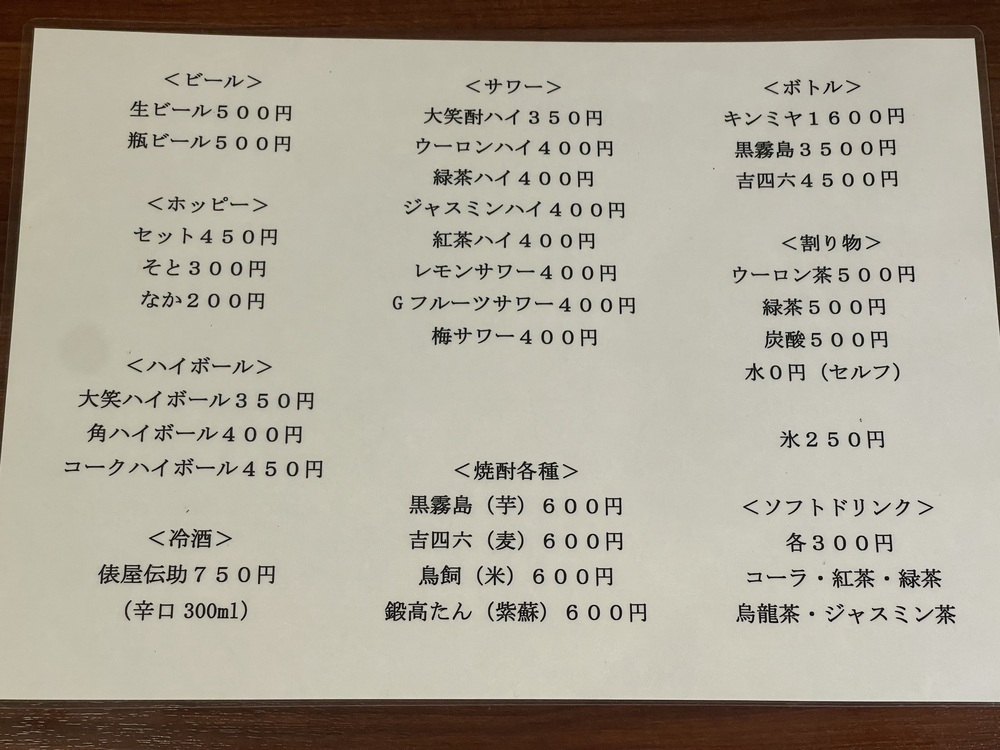 ＜ビール＞
生ビール５００円
瓶ビール５００円
＜ホッピー＞
セット４５０円
そと３００円
なか２００円
＜ハイボール＞
大笑ハイボール３５０円
角ハイボール４００円
コークハイボール４５０円
＜冷酒＞
俵屋伝助７５０円
（辛口 300ml）
＜サワー＞
大笑酎ハイ３５０円
ウーロンハイ４００円
緑茶ハイ４００円
ジャスミンハイ４００円
紅茶ハイ４００円
レモンサワー４００円
Ｇフルーツサワー４００円
梅サワー４００円
＜焼酎各種＞
黒霧島（芋）６００円
吉四六（麦）６００円
鳥飼（米）６００円
鍛高たん（紫蘇）６００円
＜ボトル＞
キンミヤ１６００円
黒霧島３５００円
吉四六４５００円
＜割り物＞
ウーロン茶５００円
緑茶５００円
炭酸５００円
水０円（セルフ）
氷２５０円
＜ソフトドリンク＞
各３００円
コーラ・紅茶・緑茶
烏龍茶・ジャスミン茶